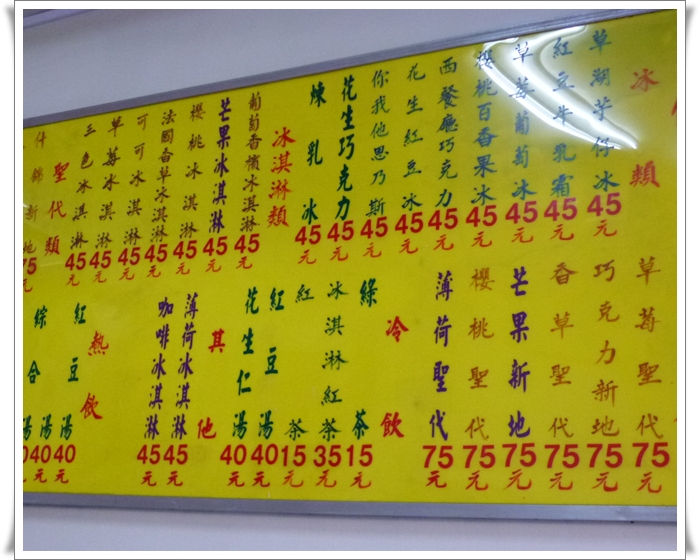 冰 類
草湖芋仔冰 45元
紅豆牛乳霜 45元
草莓葡萄冰 45元
櫻桃百香果冰 45元
西餐廳巧克力 45元
花生紅豆冰 45元
你我他思乃斯 45元
花生巧克力 45元
煉乳冰 45元
冰淇淋類
葡萄香檳冰淇淋 45元
芒果冰淇淋 45元
櫻桃冰淇淋 45元
法國香草冰淇淋 45元
可可冰淇淋 45元
草莓冰淇淋 45元
三色冰淇淋 45元
聖代類
什錦新地 75元
草莓聖代 75元
巧克力新地 75元
香草聖代 75元
芒果新地 75元
櫻桃聖代 75元
薄荷聖代 75元
冷飲
綠茶 15元
冰淇淋紅茶 35元
紅茶 15元
紅豆湯 40元
花生仁湯 40元
其他
薄荷冰淇淋 45元
咖啡冰淇淋 45元
熱飲
紅豆湯 40元
綜合湯 40元